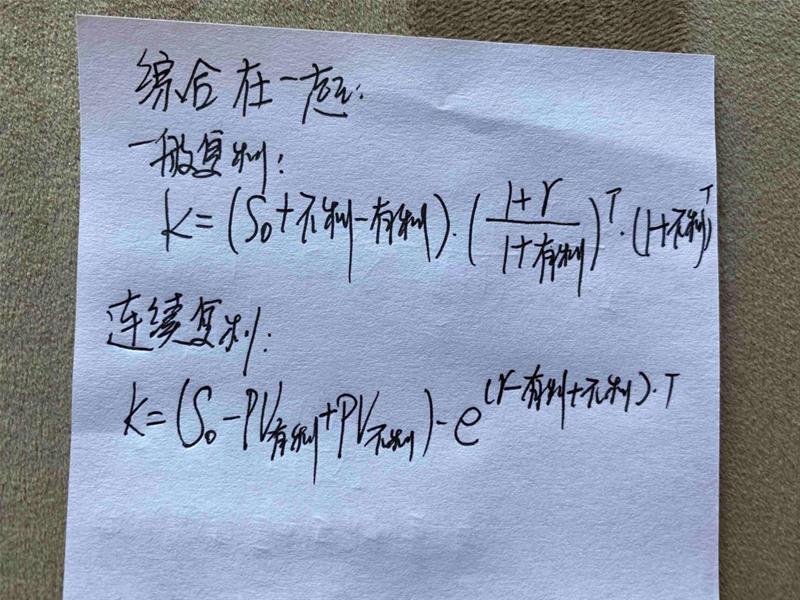 综合在一起:
一般复利:
K=(S₀+不利-有利)·(\frac{1+r}{1+有利})^T·(1+不利)^T
连续复利:
K=(S₀-PV有利+PV不利)·e^{(r-有利+不利)·T}